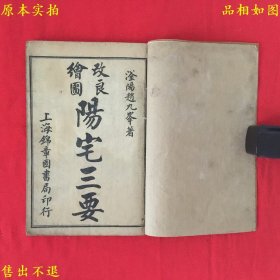 原本实拍
品相如图
滏陽趙九峯著
改良
繪圖
陽宅三要
上海錦章圖書局印行
售出不退
一物一图